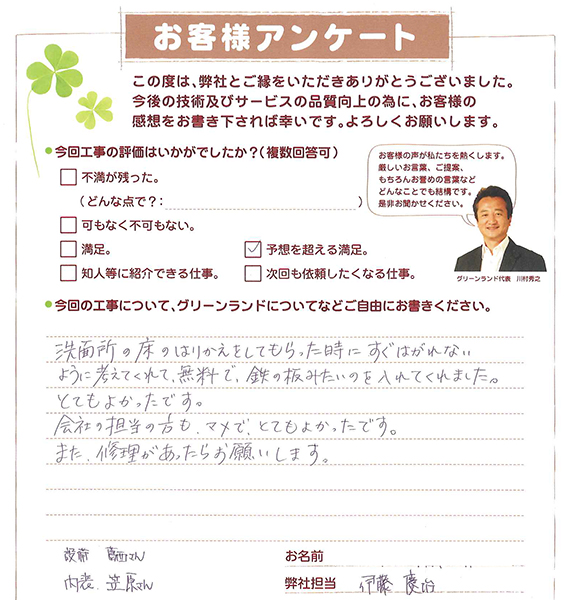 お客様アンケート
この度は、弊社とご縁をいただきありがとうございました。
今後の技術及びサービスの品質向上の為に、お客様の
感想をお書き下されば幸いです。よろしくお願いします。
今回工事の評価はいかがでしたか?(複数回答可)
不満が残った。
(どんな点で?: )
可もなく不可もない。
満足。
予想を超える満足。
知人等に紹介できる仕事。
次回も依頼したくなる仕事。
お客様の声が私たちを熱くします。
厳しいお言葉、ご提案、
もちろんお誉めの言葉など
どんなことでも結構です。
是非お聞かせください。
グリーンランド代表 川村秀之
今回の工事について、グリーンランドについてなどご自由にお書きください。
洗面所の床のはりかえをしてもらった時にすぐはがれない
ように考えてくれて、無料で、鉄の板みたいのを入れてくれました。
とてもよかったです。
会社の担当の方も、マメで、とてもよかったです。
また、修理があったらお願いします。
さん
内装、笠原さん
お名前
弊社担当 伊藤